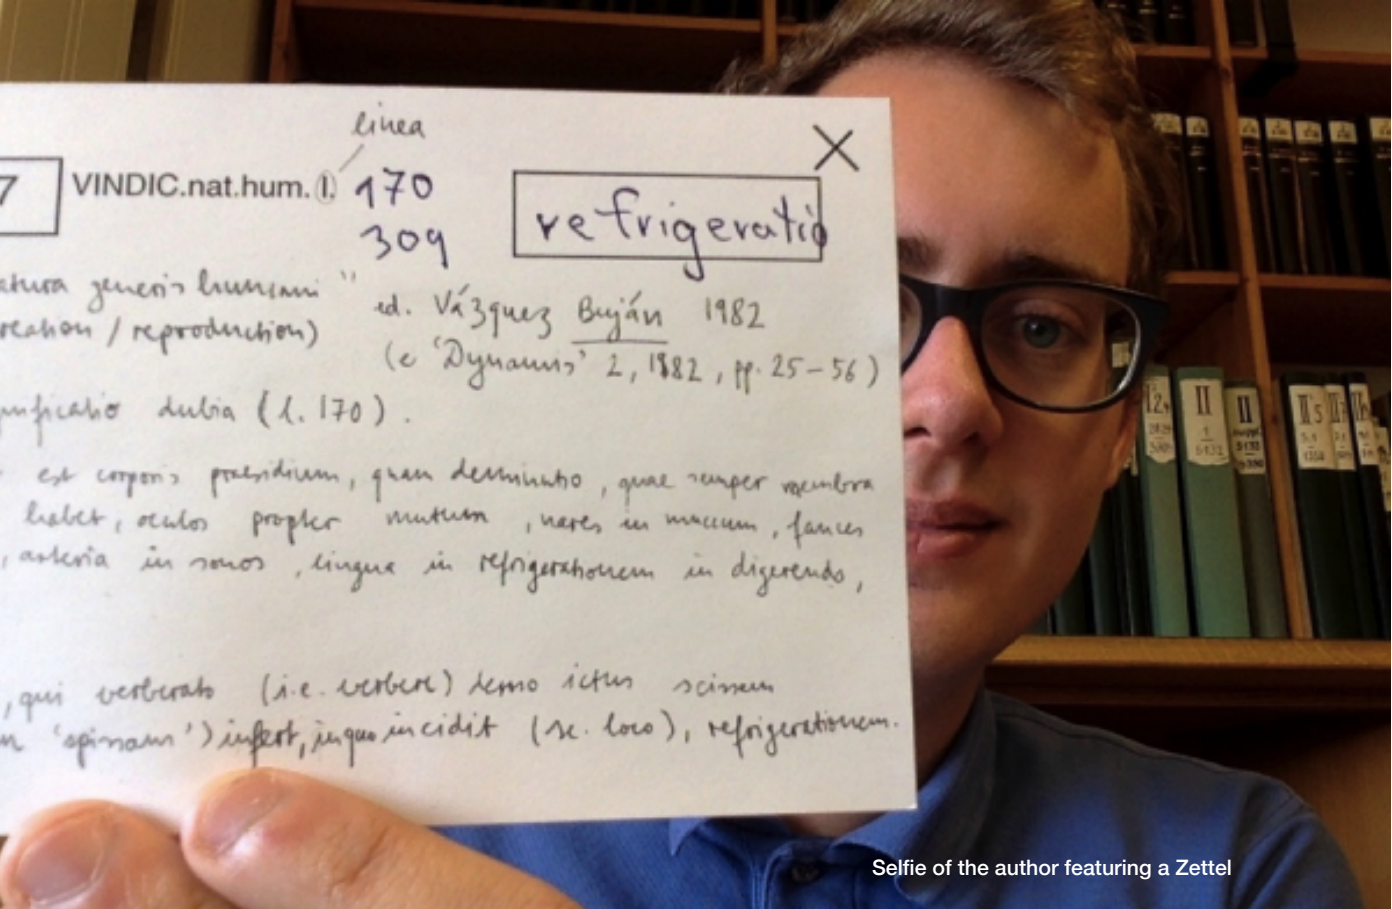 linea
7 VINDIC.nat.hum. l. 170 refrigeratio
309
atura generis humani" ed. Vázquez Buján 1982
reation / reproduction) (e 'Dynamis' 2, 1982, pp. 25–56)
gnificatio dubia (l. 170).
est corporis praesidium, quam deminutio, quae semper membra
habet, oculos propter mutum, nares in muccum, fauces
, arteria in sonos, lingua in refrigerationem in digerendo,
, qui verberato (i.e. verbere) demo ictus scissum
'spinam') infert, in quo incidit (sc. loco), refrigerationem.
Selfie of the author featuring a Zettel